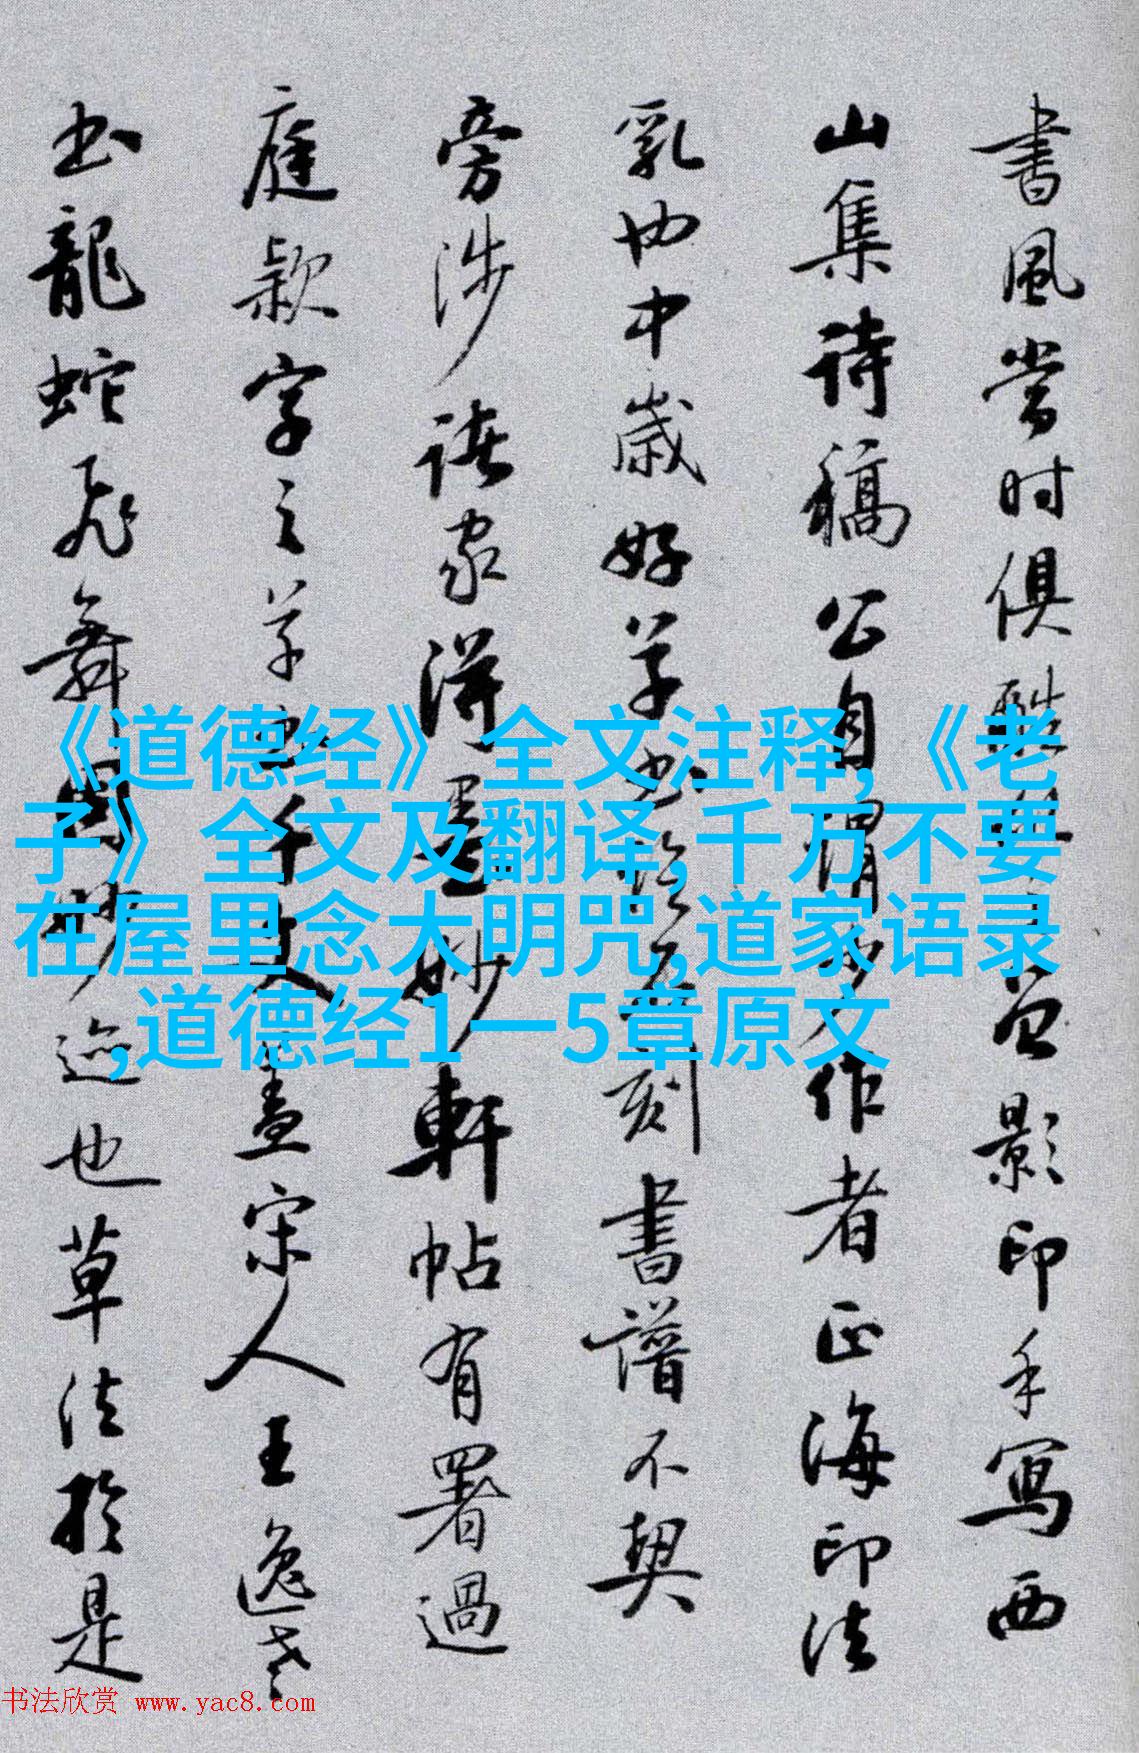 書風嘗時俱
影印手寫西
山集詩稿公自謂少作者正海印法
乳也中歲好草書
刻書譜不契
旁涉諸家得墨妙軒帖有署過
庭款字之草書千文蓋宋人王逸老
書龍蛇飛舞
妙迹也草法於是
《道德经》全文注释,《老
子》全文及翻译,千万不要
在屋里念大明咒,道家语录
,道德经1一5章原文
书法欣赏 www.yac8.com